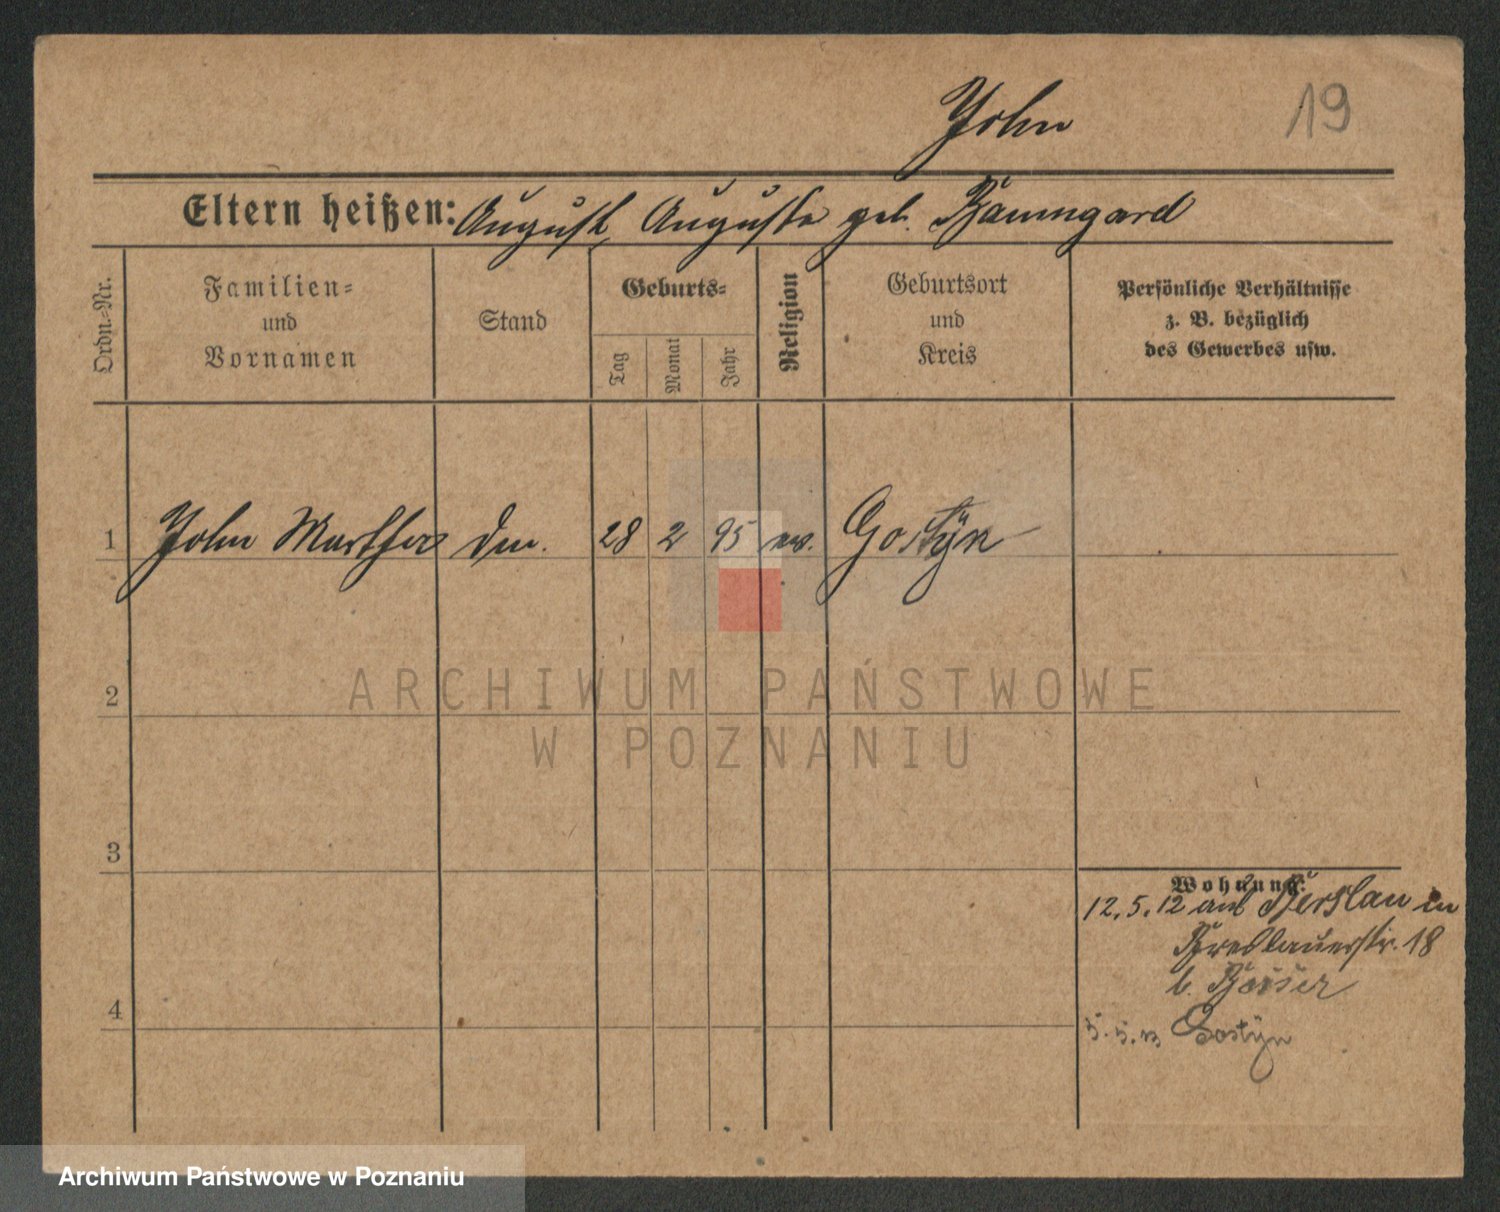 John 19
Eltern heißen: August, Auguste geb. Baumgard
Ordn.-Nr.
Familien-
und
Vornamen
Stand
Geburts-
Tag
Monat
Jahr
Religion
Geburtsort
und
Kreis
Persönliche Verhältnisse
z. B. bezüglich
des Gewerbes usw.
1 John Martha 28 2 95 ev. Gostÿn
2
ARCHIWUM PAŃSTWOWE
W POZNANIU
3
Wohnung:
12.5.12 aus in
Breslauerstr. 18
b.
4
5.5.13 Gostÿn
Archiwum Państwowe w Poznaniu